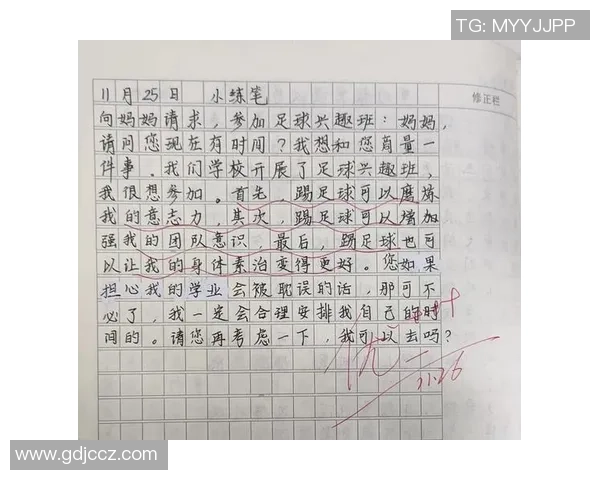 TG: MYYJJPP
修正栏
11月25日 小练笔
向妈妈请求，参加足球兴趣班：妈妈，
请问您现在有时间？我想和您商量一
件事。我们学校开展了足球兴趣班，
我很想参加。首先，踢足球可以磨炼
我的意志力，其次，踢足球可以增加
强我的团队意识，最后，踢足球也可
以让我的身体素治变得更好。您如果
担心我的学业会被耽误的话，那可不
必了，我一定会合理安排我自己的时
间的。请您再考虑一下，我可以去吗？
优++
11.26
www.gdjccz.com